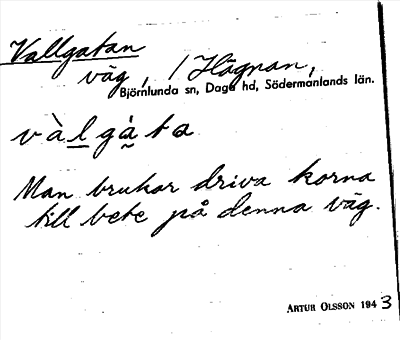 Vallgatan
väg, / Högnan,
Björnlunda sn, Daga hd, Södermanlands län.
và l gà ta
Man brukar driva korna
till bete på denna väg.
ARTUR OLSSON 1943